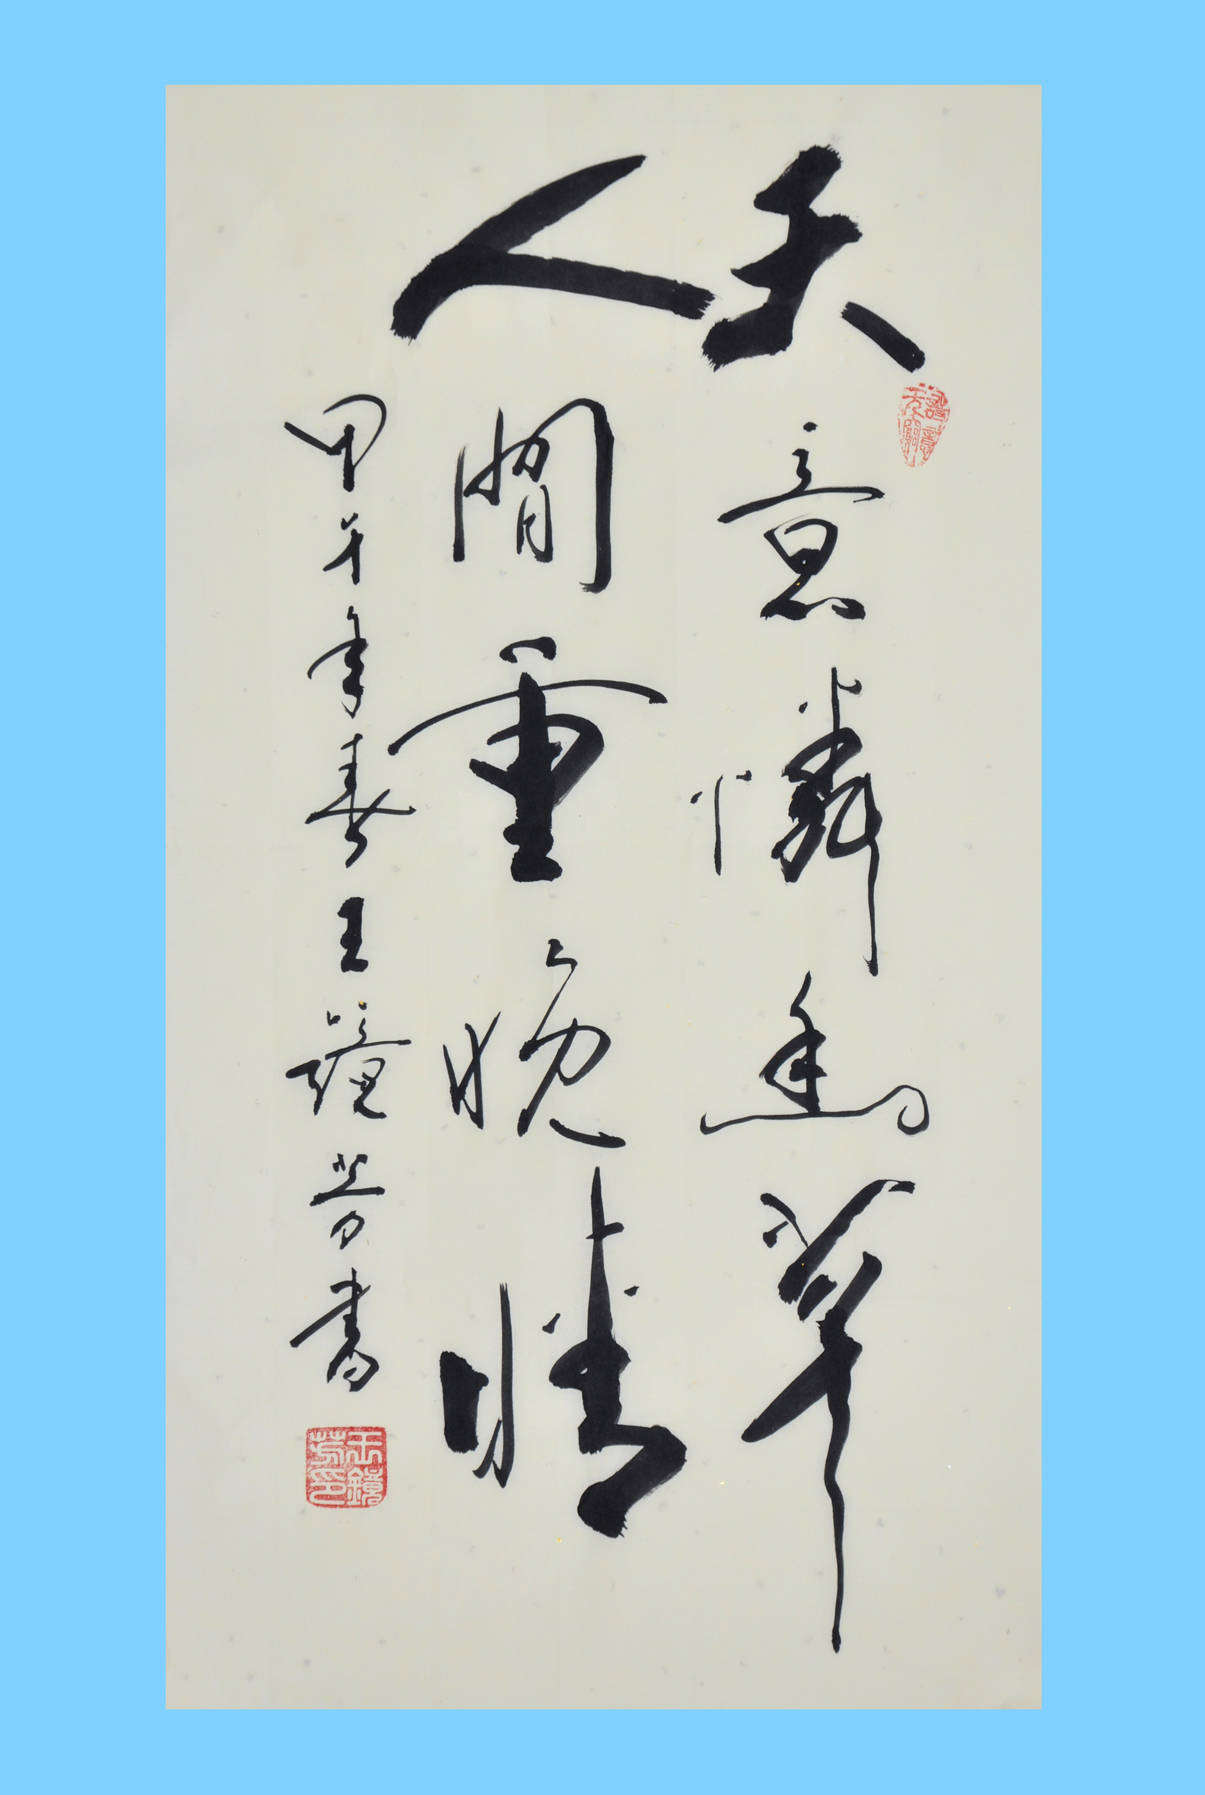 天意憐幽草
人間重晚晴
甲午年春王鏡芳書
王鏡芳印